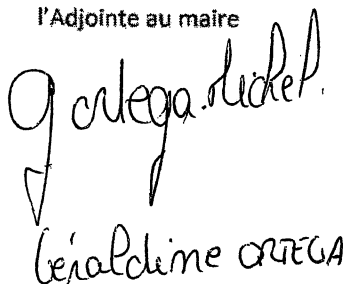 l'Adjointe au maire
g ortega.michel.
Géraldine ORTEGA